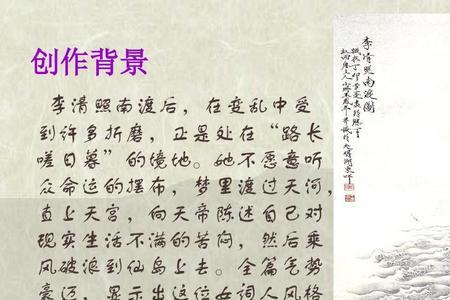 创作背景
李清照南渡后，在变乱中受
到许多折磨，正是处在“路长
嗟日暮”的境地。她不愿意听
众命运的摆布，梦里渡过天河，
直上天宫，向天帝陈述自己对
现实生活不满的苦闷，然后乘
风破浪到仙岛上去。全篇气势
豪迈，显示出这位女词人风格
李清照南渡图